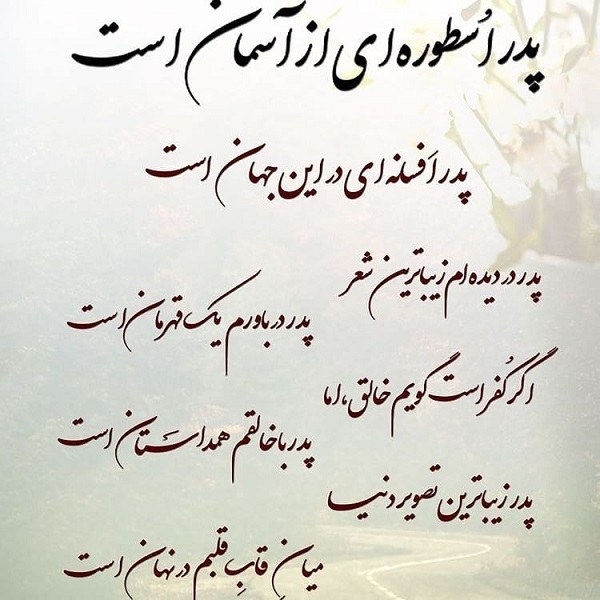 پدر اُسطوره ای از آسمان است
پدر اَفسانه ای در این جهان است
پدر در دیده ام زیباترین شعر
پدر در باورم یک قهرمان است
اگر کُفر است گویم خالق، اما
پدر با خالقم همداستان است
پدر زیباترین تصویر دنیا
میانِ قابِ قلبم در نهان است